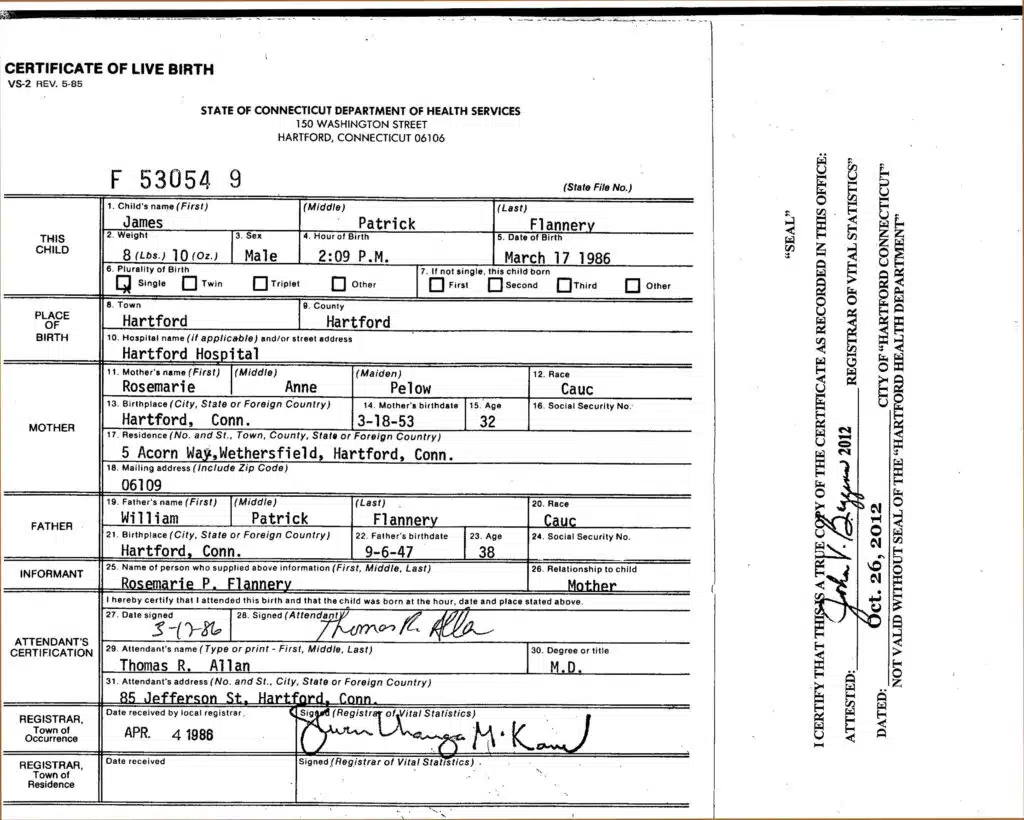 CERTIFICATE OF LIVE BIRTH
VS-2 REV. 5-85
STATE OF CONNECTICUT DEPARTMENT OF HEALTH SERVICES
150 WASHINGTON STREET
HARTFORD, CONNECTICUT 06106
F 53054 9
(State File No.)
THIS CHILD
1. Child's name (First) (Middle) (Last)
James Patrick Flannery
2. Weight 3. Sex 4. Hour of Birth 5. Date of Birth
8 (Lbs.) 10 (Oz.) Male 2:09 P.M. March 17 1986
6. Plurality of Birth 7. If not single, this child born
X Single Twin Triplet Other First Second Third Other
PLACE OF BIRTH
8. Town 9. County
Hartford Hartford
10. Hospital name (if applicable) and/or street address
Hartford Hospital
MOTHER
11. Mother's name (First) (Middle) (Maiden) 12. Race
Rosemarie Anne Pelow Cauc
13. Birthplace (City, State or Foreign Country) 14. Mother's birthdate 15. Age 16. Social Security No.
Hartford, Conn. 3-18-53 32
17. Residence (No. and St., Town, County, State or Foreign Country)
5 Acorn Way,Wethersfield, Hartford, Conn.
18. Mailing address (Include Zip Code)
06109
FATHER
19. Father's name (First) (Middle) (Last) 20. Race
William Patrick Flannery Cauc
21. Birthplace (City, State or Foreign Country) 22. Father's birthdate 23. Age 24. Social Security No.
Hartford, Conn. 9-6-47 38
INFORMANT
25. Name of person who supplied above information (First, Middle, Last) 26. Relationship to child
Rosemarie P. Flannery Mother
ATTENDANT'S CERTIFICATION
I hereby certify that I attended this birth and that the child was born at the hour, date and place stated above.
27. Date signed 28. Signed (Attendant)
3-17-86 Thomas R. Allan
29. Attendant's name (Type or print - First, Middle, Last) 30. Degree or title
Thomas R. Allan M.D.
31. Attendant's address (No. and St., City, State or Foreign Country)
85 Jefferson St, Hartford, Conn.
REGISTRAR, Town of Occurrence
Date received by local registrar Signed (Registrar of Vital Statistics)
APR. 4 1986
REGISTRAR, Town of Residence
Date received Signed (Registrar of Vital Statistics)
"SEAL"
I CERTIFY THAT THIS IS A TRUE COPY OF THE CERTIFICATE AS RECORDED IN THIS OFFICE:
ATTESTED: 2012 REGISTRAR OF VITAL STATISTICS"
DATED: Oct. 26, 2012 CITY OF "HARTFORD CONNECTICUT"
NOT VALID WITHOUT SEAL OF THE "HARTFORD HEALTH DEPARTMENT"